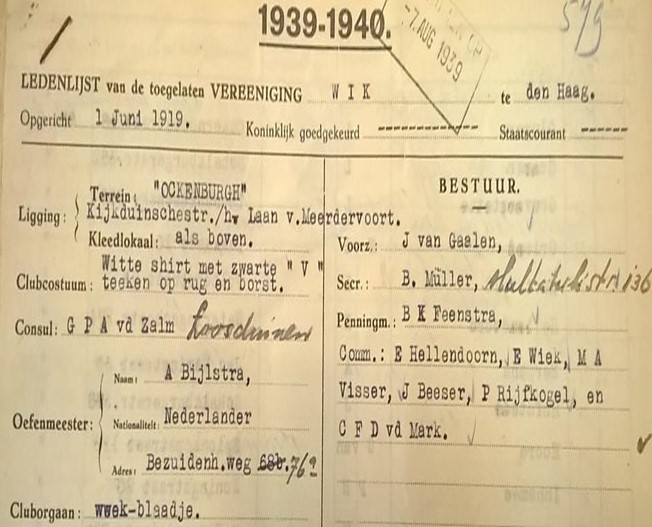 1939-1940.
-7. AUG 1939
579
LEDENLIJST van de toegelaten VEREENIGING W I K te den Haag.
Opgericht 1 Juni 1919. Koninklijk goedgekeurd ---------- Staatscourant ------
Ligging: Terrein: "OCKENBURGH"
Kijkduinschestr./hv Laan v.Meerdervoort.
Kleedlokaal: als boven.
Clubcostuum: Witte shirt met zwarte " V "
teeken op rug en borst.
Consul: G P A vd Zalm Loosduinen
Oefenmeester: Naam: A Bijlstra,
Nationaliteit: Nederlander
Adres: Bezuidenh.weg 68b. 76a
Cluborgaan: wwek-blaadje.
BESTUUR.
Voorz.: J van Gaalen,
Secr.: B. Müller, Multatulistr. 136
Penningm.: B K Feenstra,
Comm.: E Hellendoorn, E Wiek, M A
Visser, J Beeser, P Rijfkogel, en
C F D vd Mark.